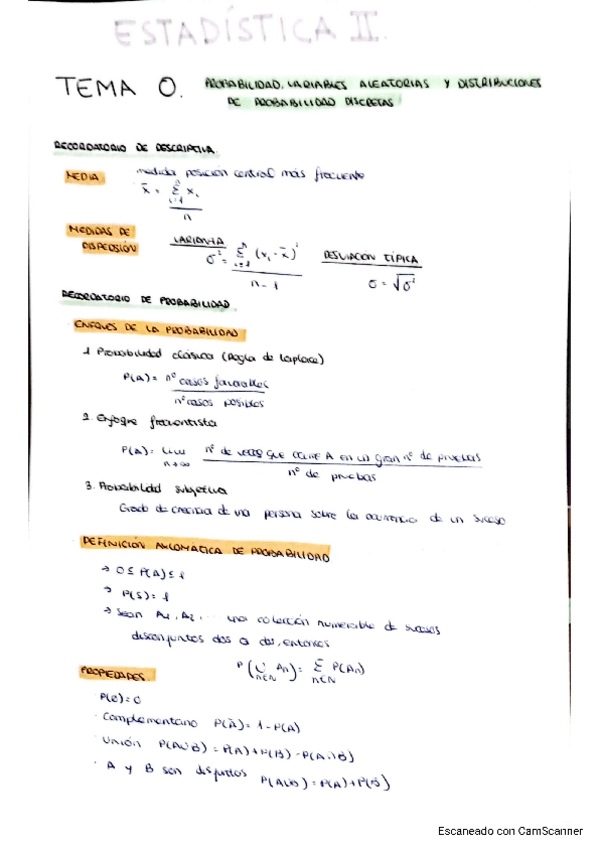 ESTADÍSTICA II.
TEMA 0. PROBABILIDAD, VARIABLES ALEATORIAS Y DISTRIBUCIONES
DE PROBABILIDAD DISCRETAS
RECORDATORIO DE DESCRIPTIVA.
MEDIA medida posición central más frecuente
x̄ = Σ_{i=1}^{n} x_i / n
MEDIDAS DE DISPERSIÓN
VARIANZA σ² = Σ_{i=1}^{n} (x_i - x̄)² / n-1
DESVIACIÓN TÍPICA σ = √σ²
RECORDATORIO DE PROBABILIDAD.
ENFOQUES DE LA PROBABILIDAD
1. Probabilidad clásica (Regla de Laplace)
P(A) = nº casos favorables / nº casos posibles
2. Enfoque frecuentista
P(A) = lim_{n→∞} nº de veces que ocurre A en un gran nº de pruebas / nº de pruebas
3. Probabilidad subjetiva
Grado de creencia de una persona sobre la ocurrencia de un suceso
DEFINICIÓN AXIOMÁTICA DE PROBABILIDAD
→ 0 ≤ P(A) ≤ 1
→ P(S) = 1
→ Sean A₁, A₂, ... una colección numerable de sucesos
disconjuntos dos a dos, entonces
P(∪_{n∈N} An) = Σ_{n∈N} P(An)
PROPIEDADES.
P(∅) = 0
· Complementario P(Ā) = 1 - P(A)
· Unión P(A∪B) = P(A) + P(B) - P(A∩B)
· A y B son disjuntos P(A∪B) = P(A) + P(B)
Escaneado con CamScanner